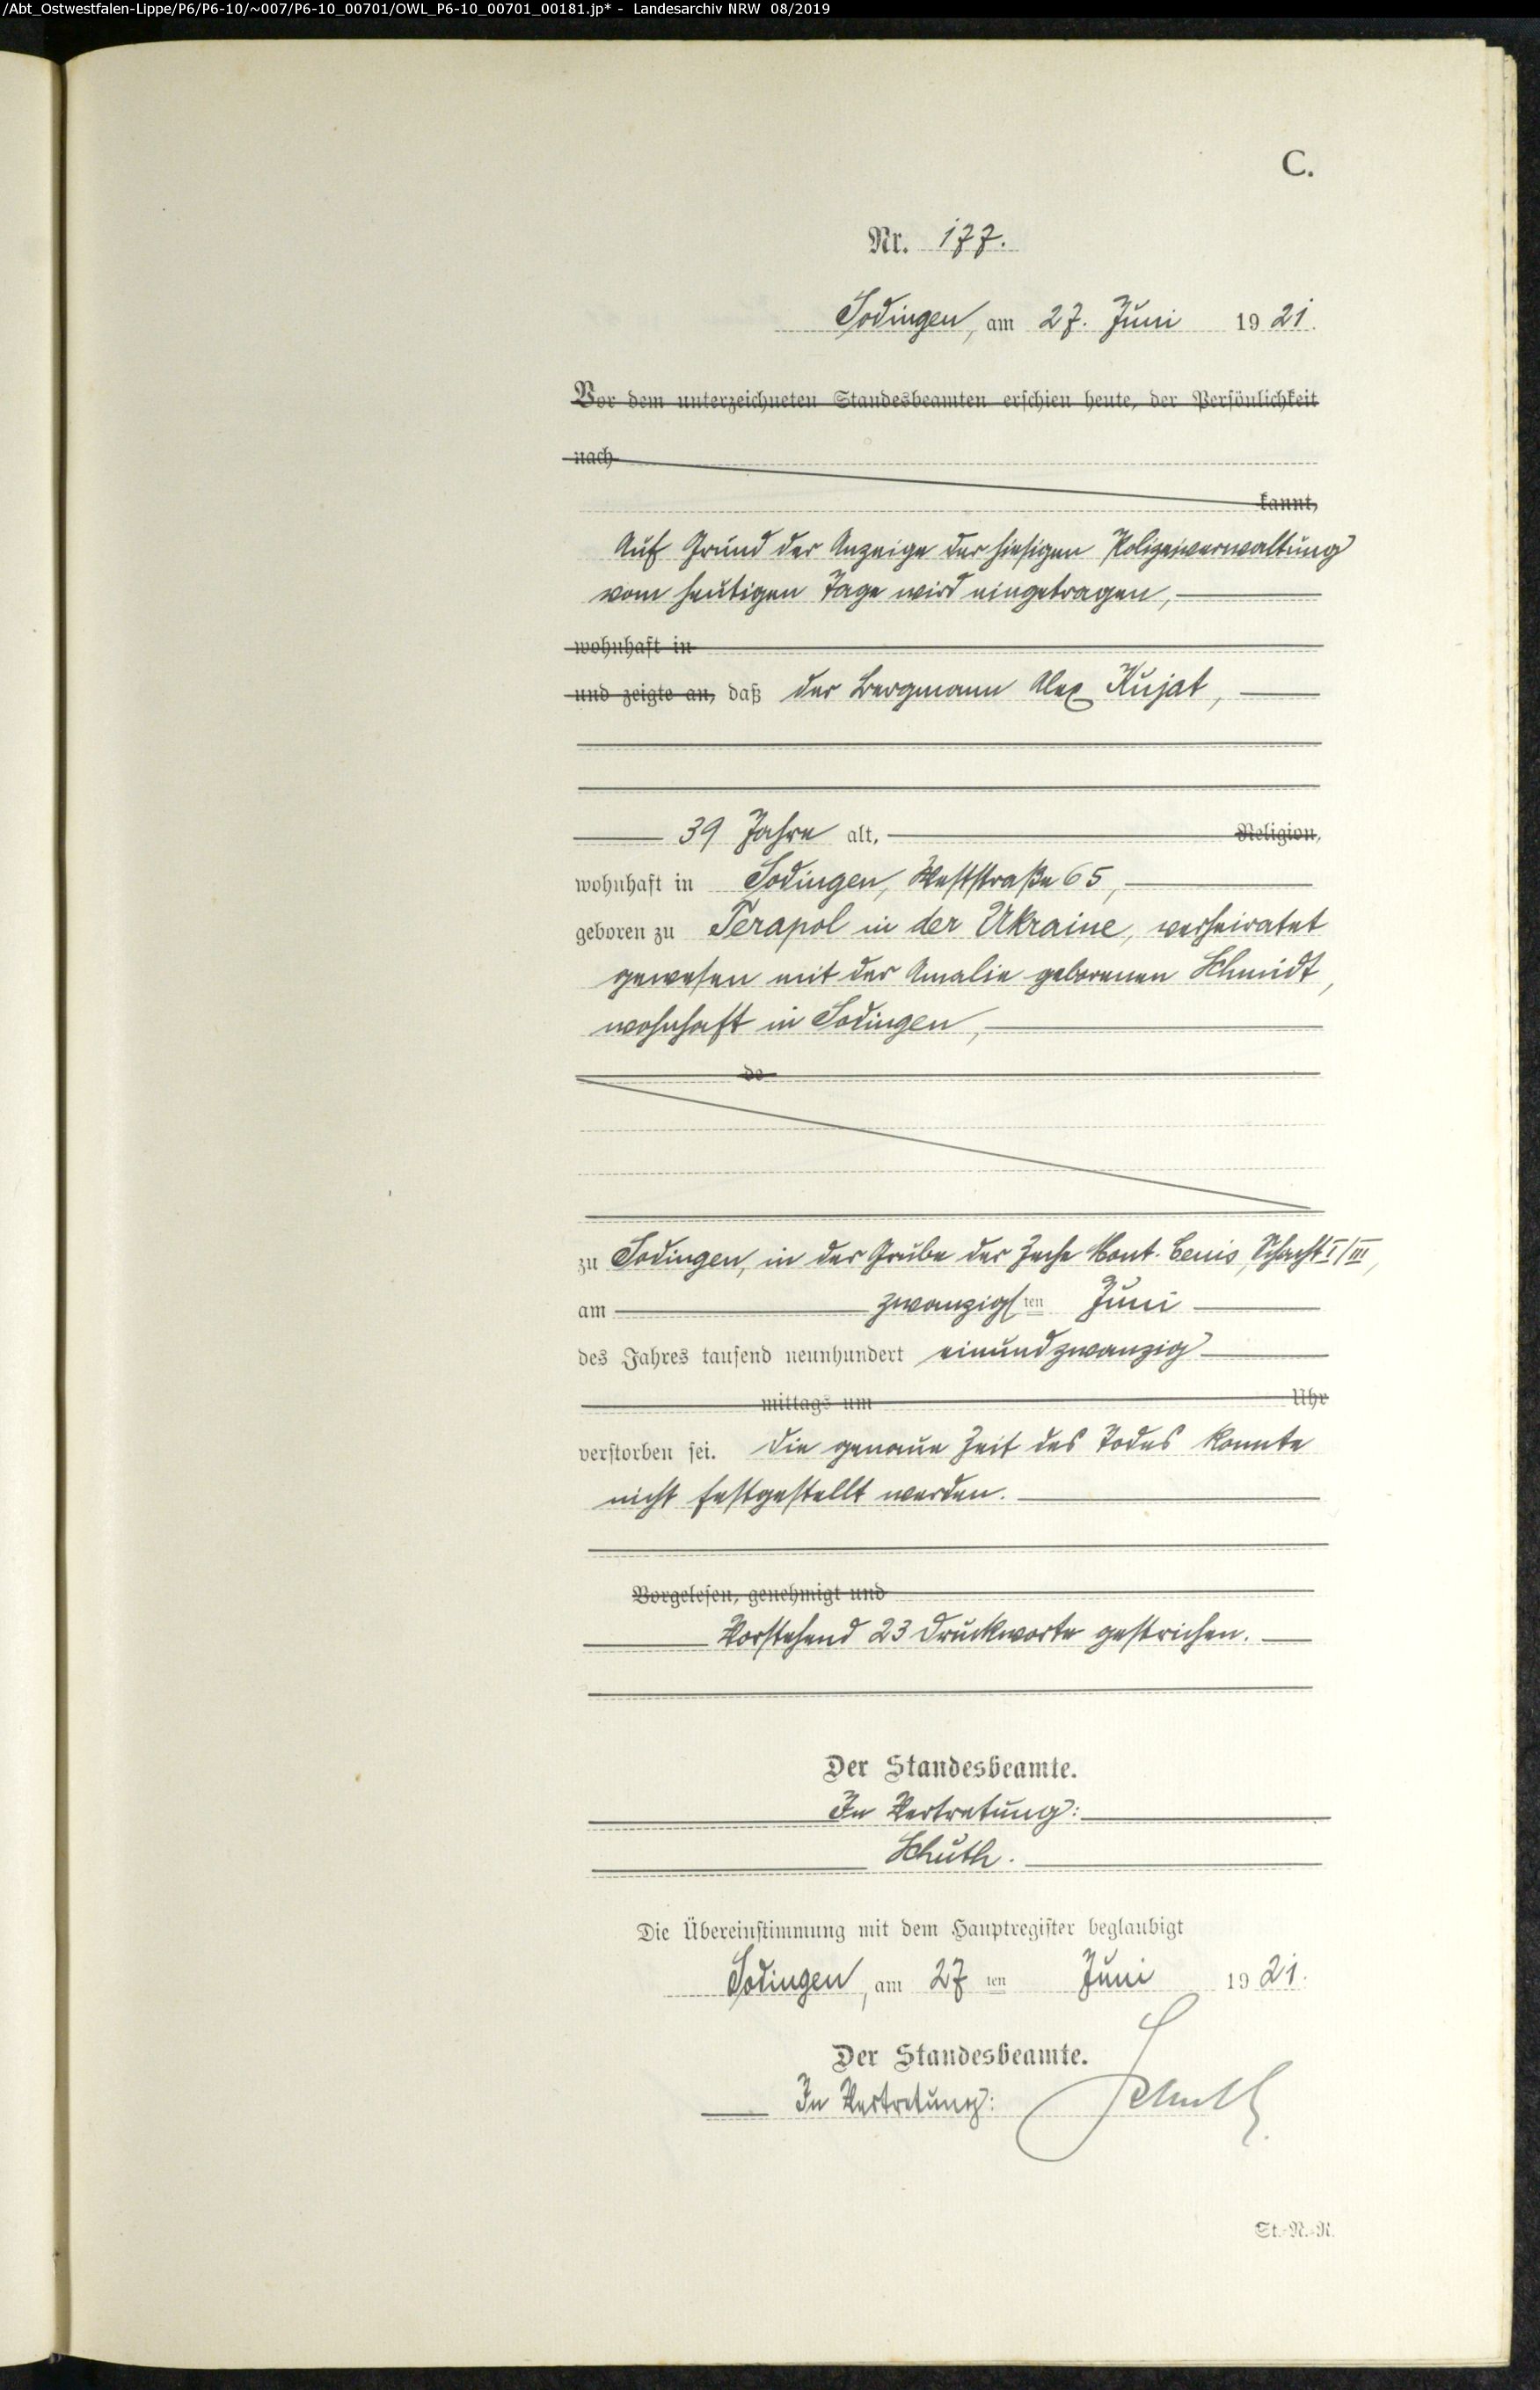 /Abt_Ostwestfalen-Lippe/P6/P6-10/~007/P6-10_00701/OWL_P6-10_00701_00181.jp* - Landesarchiv NRW 08/2019
C.
Nr. 177.
Sodingen, am 27. Juni 1921.
Vor dem unterzeichneten Standesbeamten erschien heute, der Persönlichkeit
nach
kannt,
Auf Grund der Anzeige der hiesigen Polizeiverwaltung
vom heutigen Tage wird eingetragen,
wohnhaft in
und zeigte an, daß der Bergmann Alex Kujat,
39 Jahre alt, Religion,
wohnhaft in Sodingen, Weststraße 65,
geboren zu Terapol in der Ukraine, verheiratet
gewesen mit der Amalie geborenen Schmidt,
wohnhaft in Sodingen,
de
zu Sodingen, in der Grube der Zeche Mont-Cenis, Schacht I/III,
am zwanzigsten Juni
des Jahres tausend neunhundert einundzwanzig
mittags um Uhr
verstorben sei. Die genaue Zeit des Todes konnte
nicht festgestellt werden.
Vorgelesen, genehmigt und
Vorstehend 23 Druckworte gestrichen.
Der Standesbeamte.
In Vertretung:
Schuth.
Die Übereinstimmung mit dem Hauptregister beglaubigt
Sodingen, am 27ten Juni 1921.
Der Standesbeamte.
In Vertretung: Schuth.
St.-N.-R.